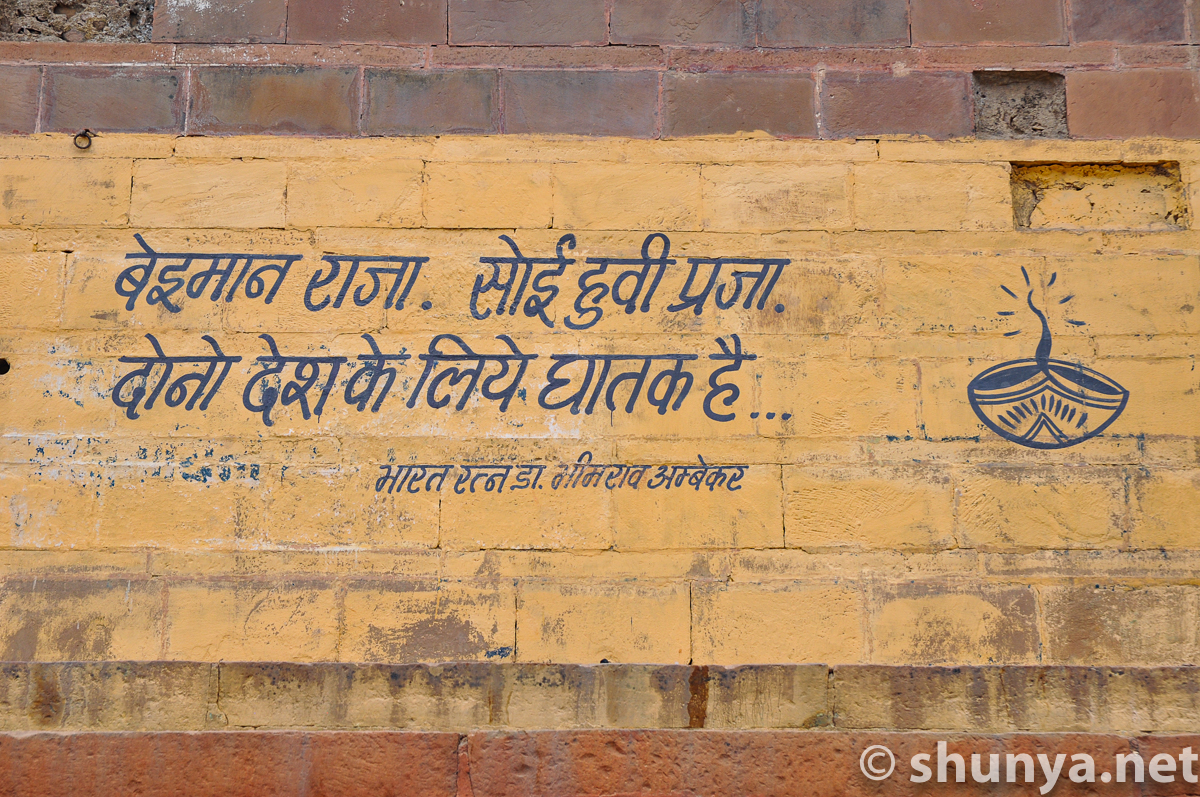 बेइमान राजा. सोई हुवी प्रजा.
दोनो देश के लिये घातक है...
भारत रत्न डा. भीमराव अम्बेकर
© shunya.net